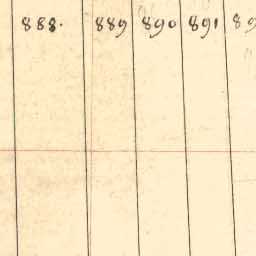 888. 889 890 891